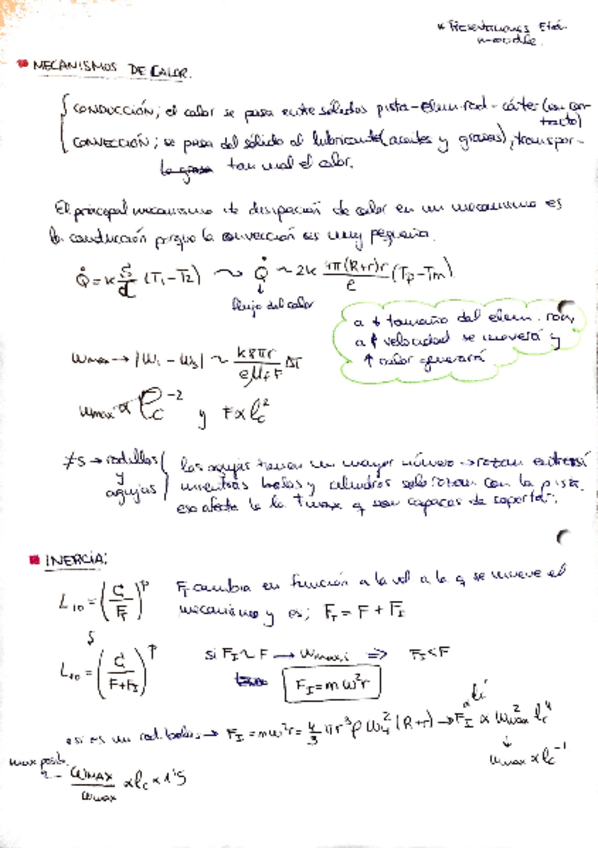 * Presentaciones
moodle.
MECANISMOS DE CALOR.
CONDUCCIÓN; el calor se pasa entre sólidos pista-elem.rod-cárter (con con-
tacto)
CONVECCIÓN; se pasa del sólido al lubricante (aceites y grasas), transpor-
tan mal el calor.
El principal mecanismo de disipación de calor en un mecanismo es
la conducción porque la convección es muy pequeña.
Q̇ = k S/d (T₁-T₂) ~> Q̇ ~ 2k 4π(R+r)r/e (Tp-Tm)
flujo del calor
a ↓ tamaño del elem. rod,
a ↑ velocidad se moverá y
↑ calor generará
ωmax → |ω₁ - ω₃| ~ k8πr/eμfF ΔT
ωmax ∝ lc⁻² y F ∝ lc²
≠s → rodillos y agujas
las agujas tienen un mayor número → rozan entre sí
mientras bolas y cilindros solo rozan con la pista.
eso afecta a la Tmax q son capaces de soportar.
INERCIA:
L₁₀ = (C/F_T)^p F_T cambia en función a la vel a la q se mueve el
mecanismo y es; F_T = F + F_I
L₁₀ = (C/F+F_I)^p si F_I ~ F → ωmax,i => F_I < F
F_I = mω²r
así es un rod. bolas → F_I = mω²r = 4/3 πr³ρ ω₄² (R+r) → F_I ∝ ω²max lc⁴
ωmax ∝ lc⁻¹
ωMAX/ωmax ∝ lc × 1'5